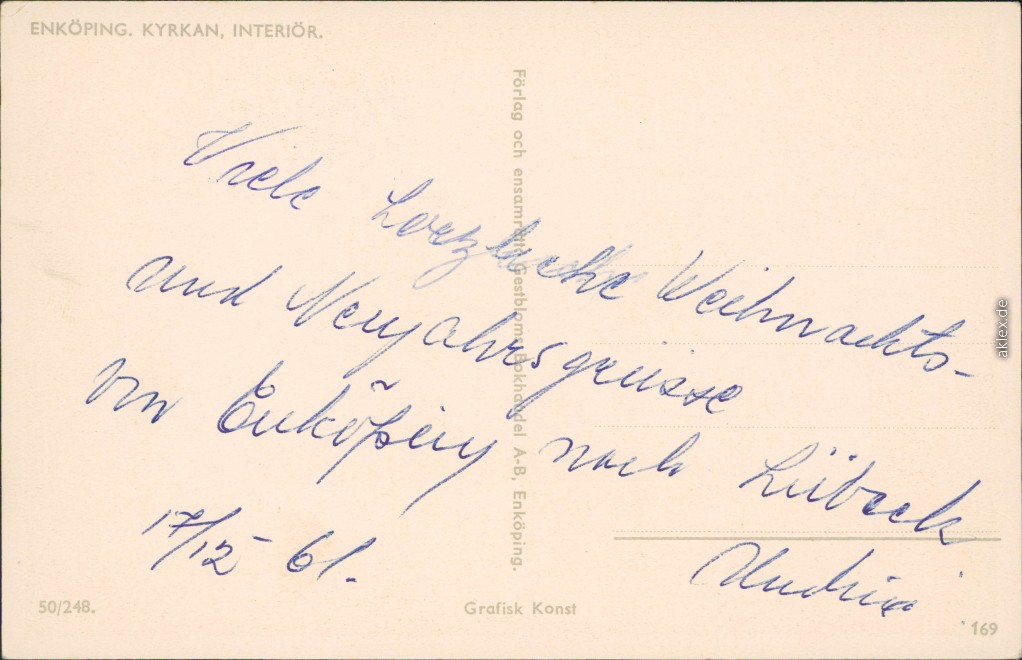 ENKÖPING. KYRKAN, INTERIÖR.
Förlag och ensamrätt: Gestbloms Bokhandel A-B, Enköping.
Viele herzliche Weihnachts-
und Neujahrsgrüsse
von Enköping nach Lübeck
17/12 61.
50/248.
Grafisk Konst
169
aklex.de